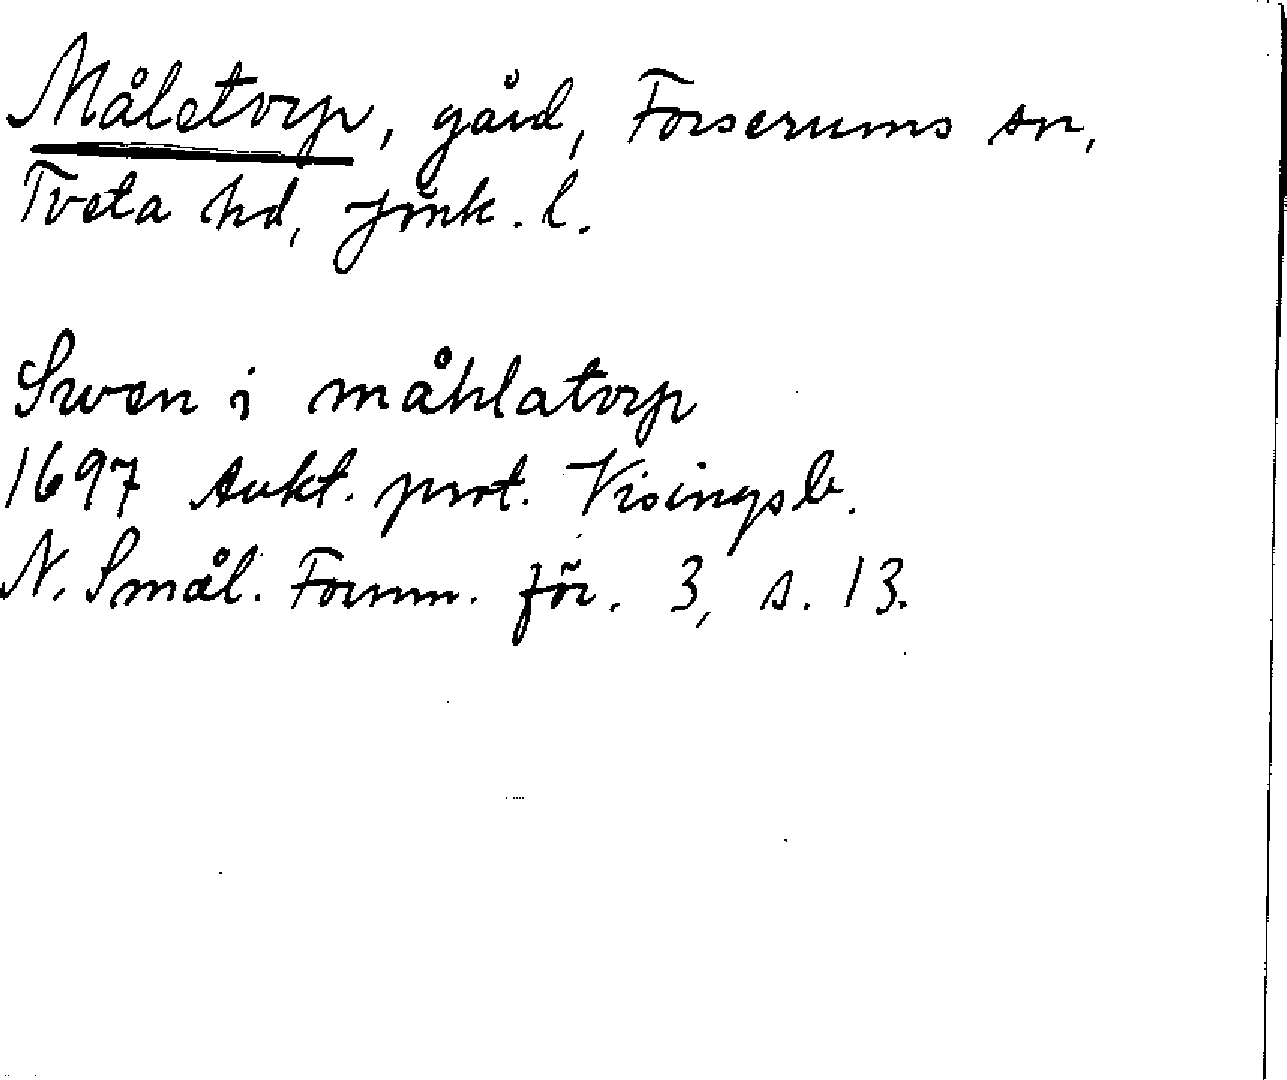 Måletorp, gård, Forserums sn,
Tveta hd, Jönk. l.
Swen i måhlatorp
1697 Aukt. prot. Visingsb.
N. Smål. Fornm. för. 3, s. 13.